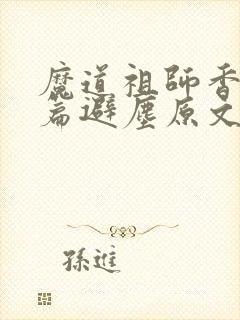 魔道祖師香
篇避塵原文
孫進